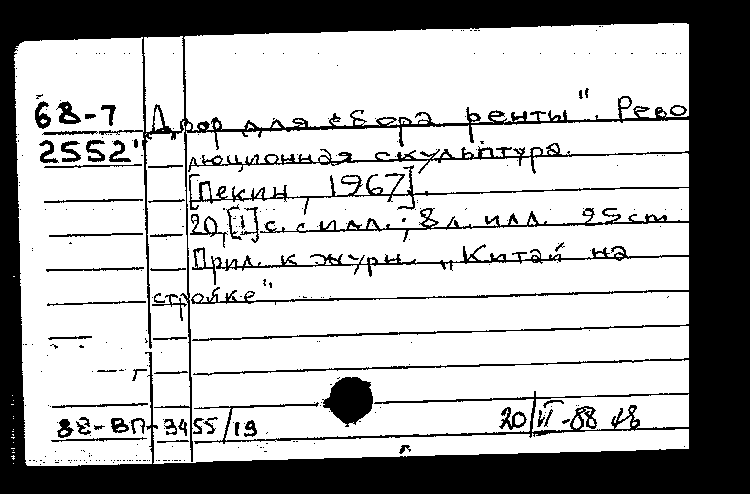 68-7 „Двор для сбора ренты". Рево
2552 люционная скульптура.
[Пекин, 1967].
20,[1]с. с илл.; 8 л. илл. 25 cm
Прил. к журн. „Китай на
стройке"
88-ВП-3455/19 20/VI-88